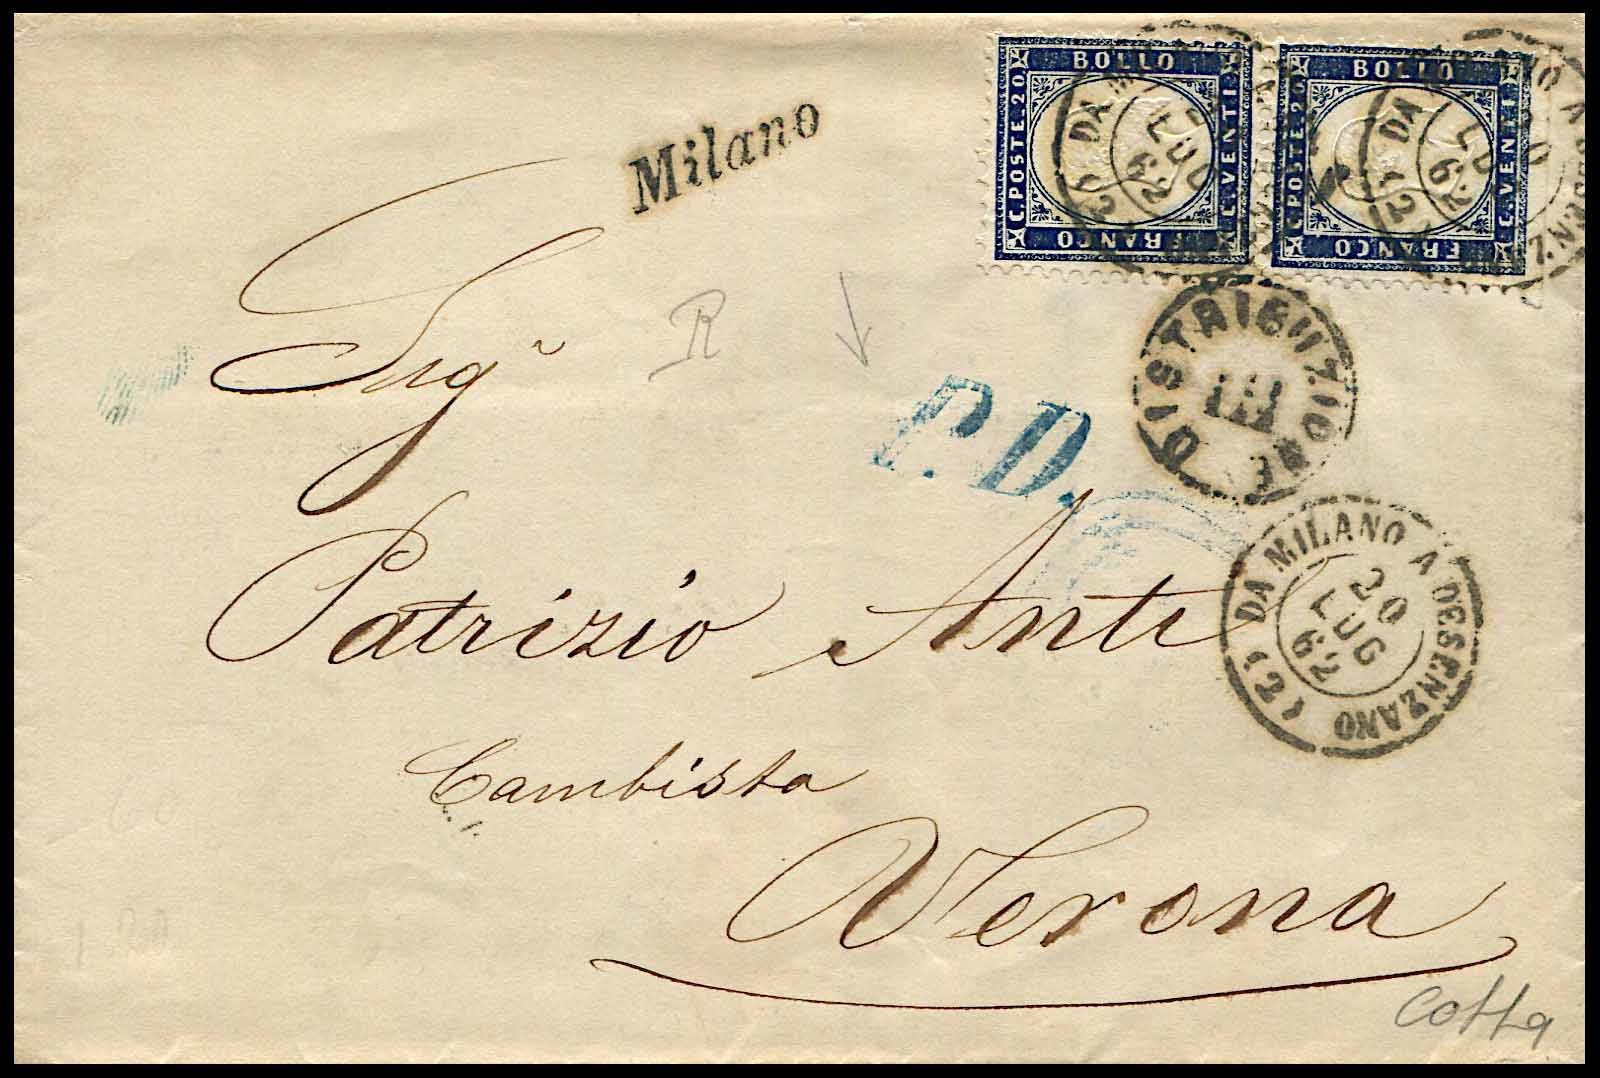 BOLLO
C. POSTE. 20
C. VENTI
FRANCO
BOLLO
C. POSTE. 20
C. VENTI
FRANCO
DA
LUG
62
DA
62
Milano
R
P.D.
DISTRIBUZIONE
III
(2) DA MILANO A DESENZANO
20
LUG
62
Sigr
Patrizio Anti
Cambista
Verona